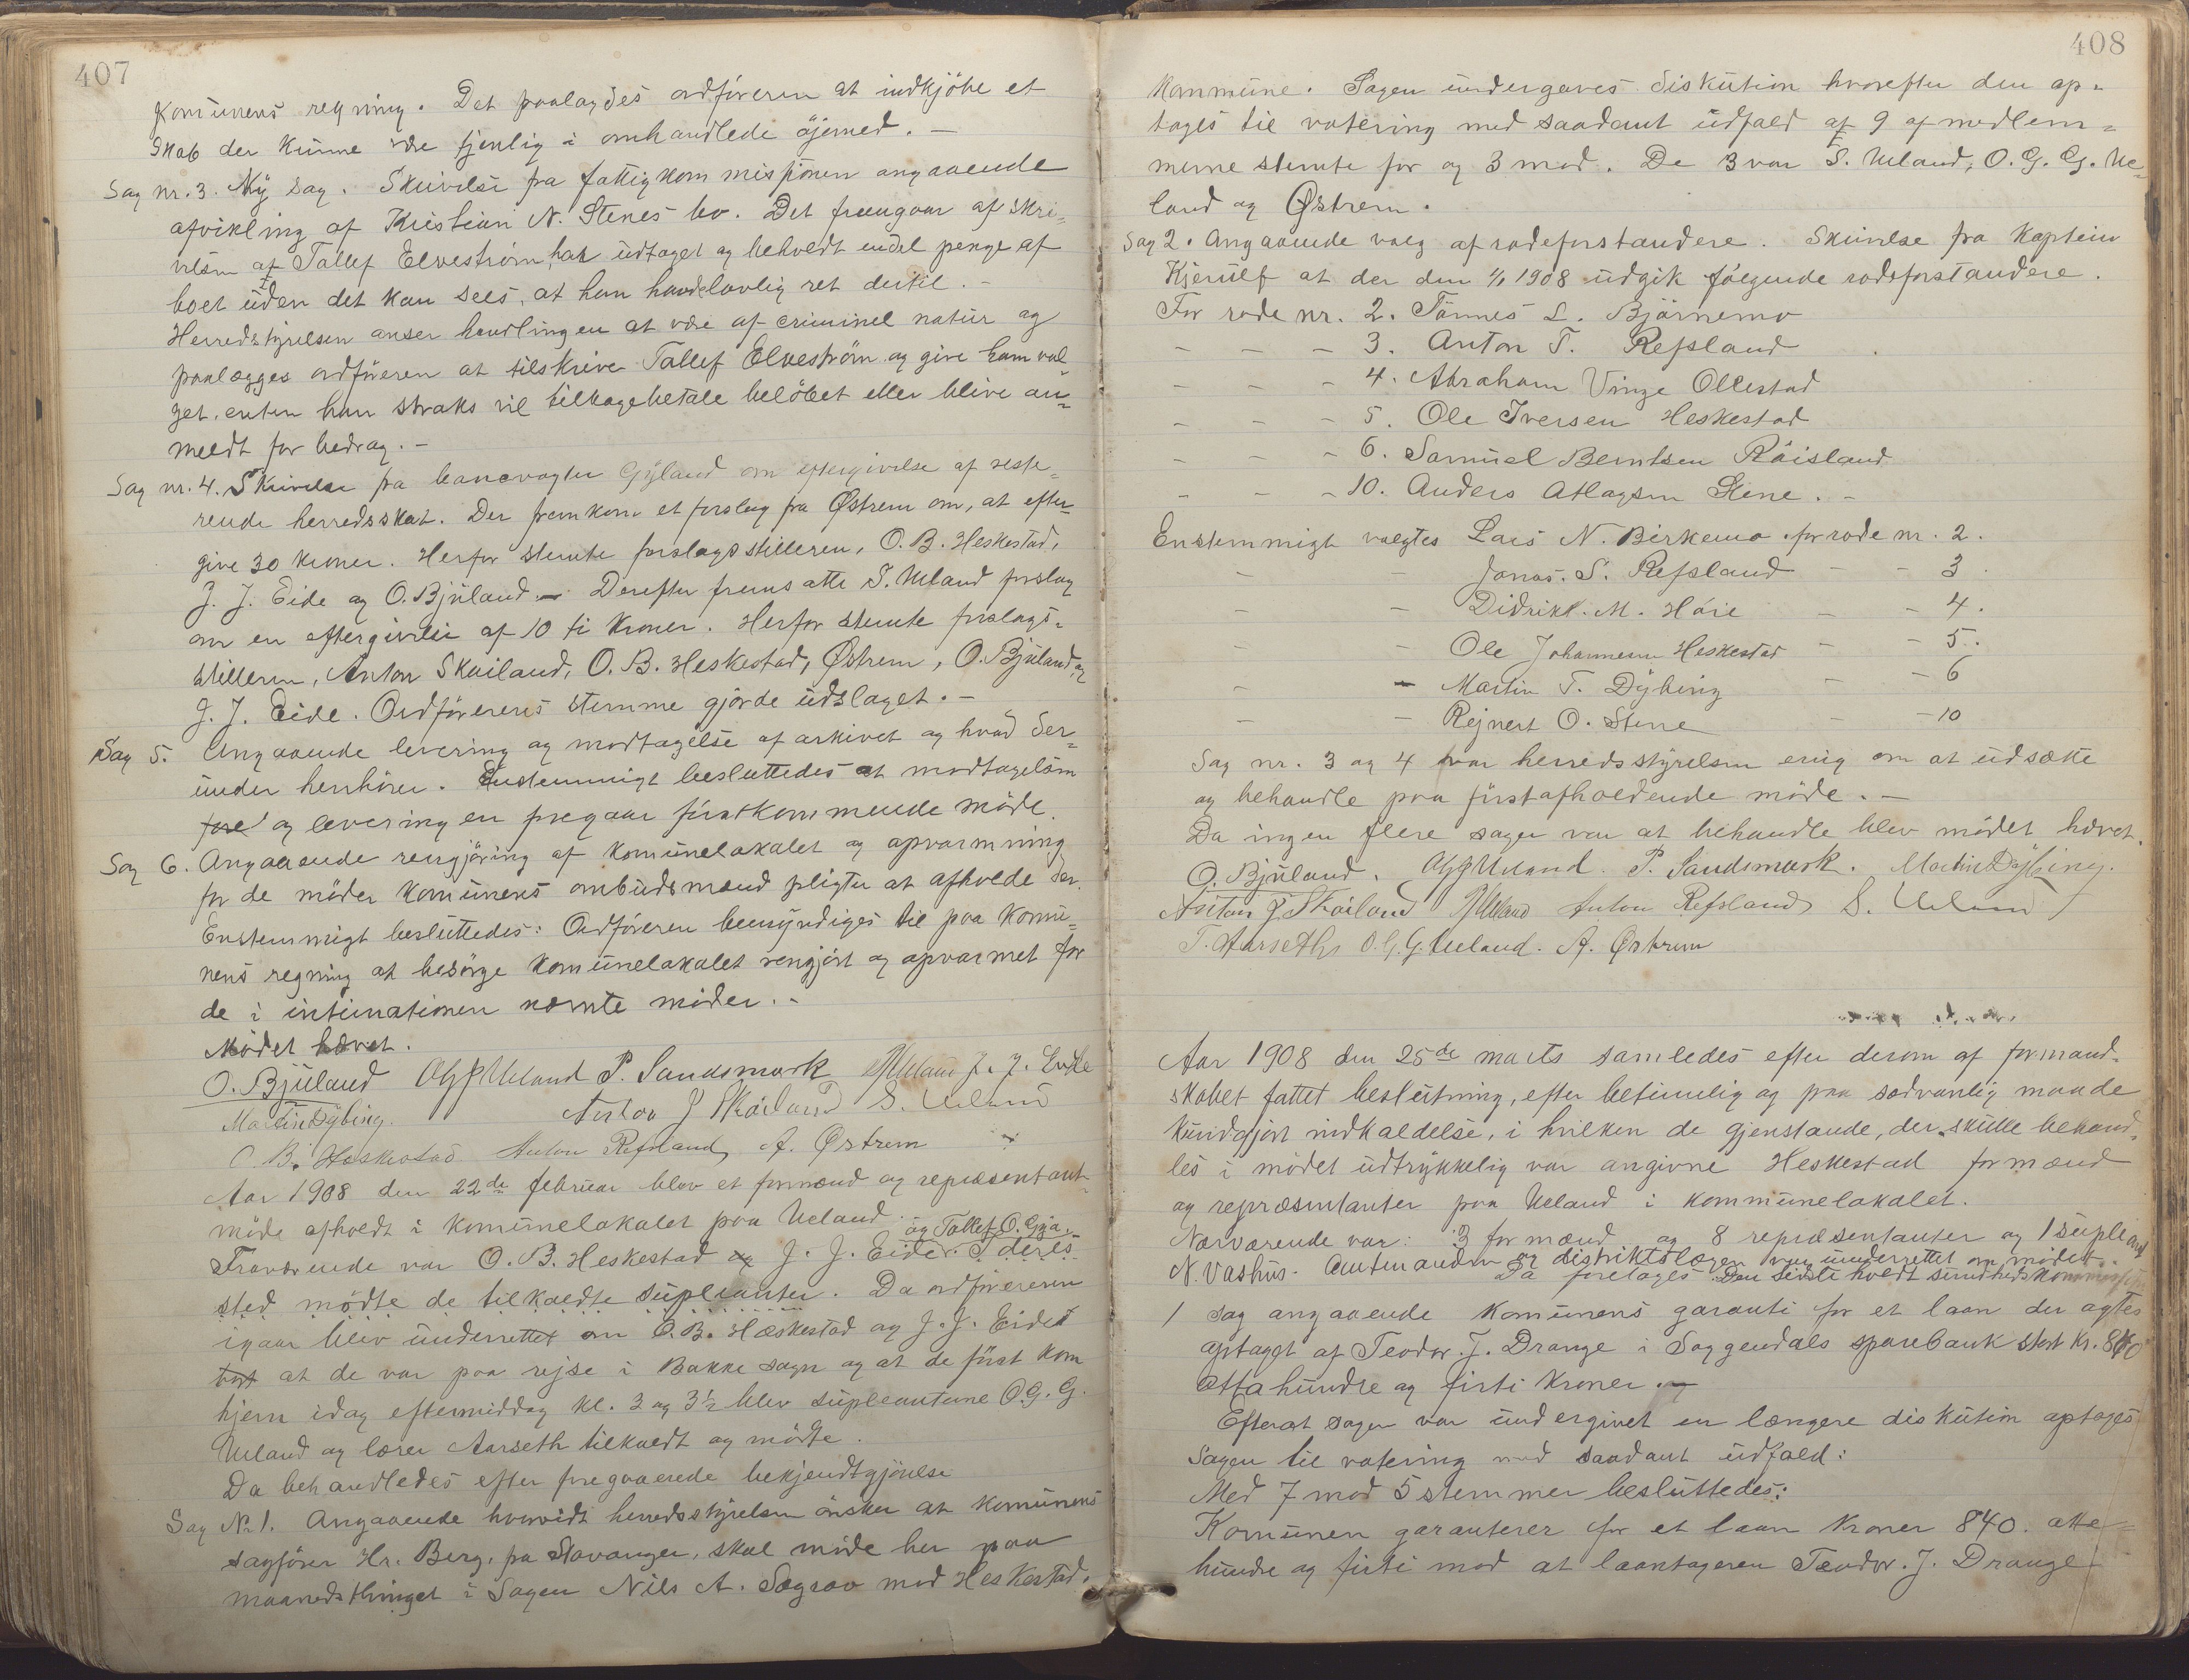 407
Komunens regning. Det paalagdes ordføreren at indkjøbe et
skab der kunne være tjenlig i omhandlede øjemed. —
Sag nr. 3. Ny sag. Skrivelse fra fattigkommisjonen angaaende
afvikling af Kristian N. Stenes bo. Det fremgaar af skri-
velsen at Tallef Elvestrøm har udtaget og beholdt endel penge af
boet uden det kan sees, at han havde lovlig ret dertil. —
Herredstyrelsen anser handlingen at være af criminel natur og
paalægges ordføreren at tilskrive Tallef Elvestrøm og give ham val-
get, enten han straks vil tilbagebetale beløbet eller blive an-
meldt for bedrag. —
Sag nr. 4. Skrivelse fra banevogter Gyland om eftergivelse af reste-
rende herredsskat. Der fremkom et forslag fra Østrem om, at efter-
give 30 kroner. Herfor stemte forslagsstilleren, O. B. Heskestad,
J. J. Eide og O. Bjuland. — Derefter fremsatte S. Ueland forslag
om en eftergivelse af 10 ti kroner. Herfor stemte forslags-
stilleren, Anton Skailand, O. B. Heskestad, Østrem, O. Bjuland og
J. J. Eide. Ordførerens stemme gjorde udslaget. —
Sag 5. Angaaende levering og modtagelse af arkivet og hvad der-
under henhører. Enstemmigt besluttedes at modtagelsen
fore og leveringen foregaar førstkommende møde.
Sag 6. Angaaende rengjøring af komunelokalet og opvarmning
for de møder komunens ombudsmænd pligter at afholde der.
Enstemmigt besluttedes: Ordføreren bemyndiges til paa komu-
nens regning at besørge komunelokalet rengjort og opvarmet for
de i intimationen nævnte møder. —
Mødet hævet.
O. Bjuland OGG Ueland P. Sandsmark J. J. Eide
Martin Dybing. Anton J Skailand S. Ueland
O. B. Heskestad Anton Refsland, A. Østrem
Aar 1908 den 22de februar blev et formænd og repræsentant-
møde afholdt i komunelokalet paa Ueland.
og Tallef O. Gja.
Fraværende var O. B. Heskestad og J. J. Eide. I deres
sted mødte de tilkaldte suplianter. Da ordføreren
igaar blev underrettet om O. B. Heskestad og J. J. Eides
at de var paa rejse i Bakke sogn og at de først kom
hjem idag eftermiddag kl. 3 og 3½ blev supleanterne O. G. G.
Ueland og lærer Aarseth tilkaldt og mødte.
Da behandledes efter foregaaende bekjendtgjørelse
Sag No 1. Angaaende hvorvidt herredsstyrelsen ønsker at komunens
sagfører Hr. Berg, fra Stavanger, skal møde her paa
maanedsthinget i Sagen Nils A. Sægrov mod Heskestad
408
Kommune. Sagen undergaves diskution hvorefter den op-
toges til votering med saadant udfald at 9 af medlem-
merne stemte for og 3 mod. De 3 var S. Ueland, O. G. G. Ue-
land og Østrem.
Sag 2. Angaaende valg af rodeforstandere. Skrivelse fra kaptein
Kjerulf at der den 1/1 1908 udgik følgende rodeforstandere.
For rode nr. 2. Tønnes L. Bjørnemo
- - - 3. Anton T. Refsland
- - - 4. Abraham Vinze Ollestad
- - - 5. Ole Iversen Heskestad
- - - 6. Samuel Berntsen Røisland
- - - 10. Anders Atlagsen Stene. -
Enstemmigt valgtes Lars N. Birkemo for rode nr. 2.
- - Jonas. S. Refsland - - 3
- - Didrik M. Høie - - 4.
- - Ole Johannesen Heskestad - - 5.
- - Martin T. Dybing - - 6
- - Rejnert O. Stene - - 10
Sag nr. 3 og 4 var herredsstyrelsen enig om at udsætte
og behandle paa førstafholdende møde. —
Da ingen flere sager var at behandle blev mødet hævet.
O. Bjuland. OGGUeland. P. Sandsmark. Martin Dybing.
Anton J. Skailand Anton Refsland S. Ueland
T. Aarseth O. G. G. Ueland. A. Østrem
Aar 1908 den 25de marts samledes efter derom af formand-
skabet fattet beslutning, efter betimelig og paa sædvanlig maade
kundgjort indkaldelse, i hvilken de gjenstande, der skulle behand-
les i mødet udtrykkelig var angivne Heskestad formænd
og repræsentanter paa Ueland i kommunelokalet.
Nærværende var: 3 formænd og 8 repræsentanter og 1 supleant
N. Vashus. Amtmanden og distriktslægen var underrettet om mødet.
Da foretoges Den sidste holdt sundhedskommission
1 Sag angaaende komunens garanti for et laan der agtes
optaget af Teodor. J. Drange i Soggendals sparebank stort kr. 840
ottehundre og firti kroner. —
Efterat sagen var undergivet en længere diskution optoges
sagen til votering med saadant udfald:
Med 7 mod 5 stemmer besluttedes:
Komunen garanterer for et laan kroner 840. otte-
hundre og firti mod at laantageren Teodor. J. Drange